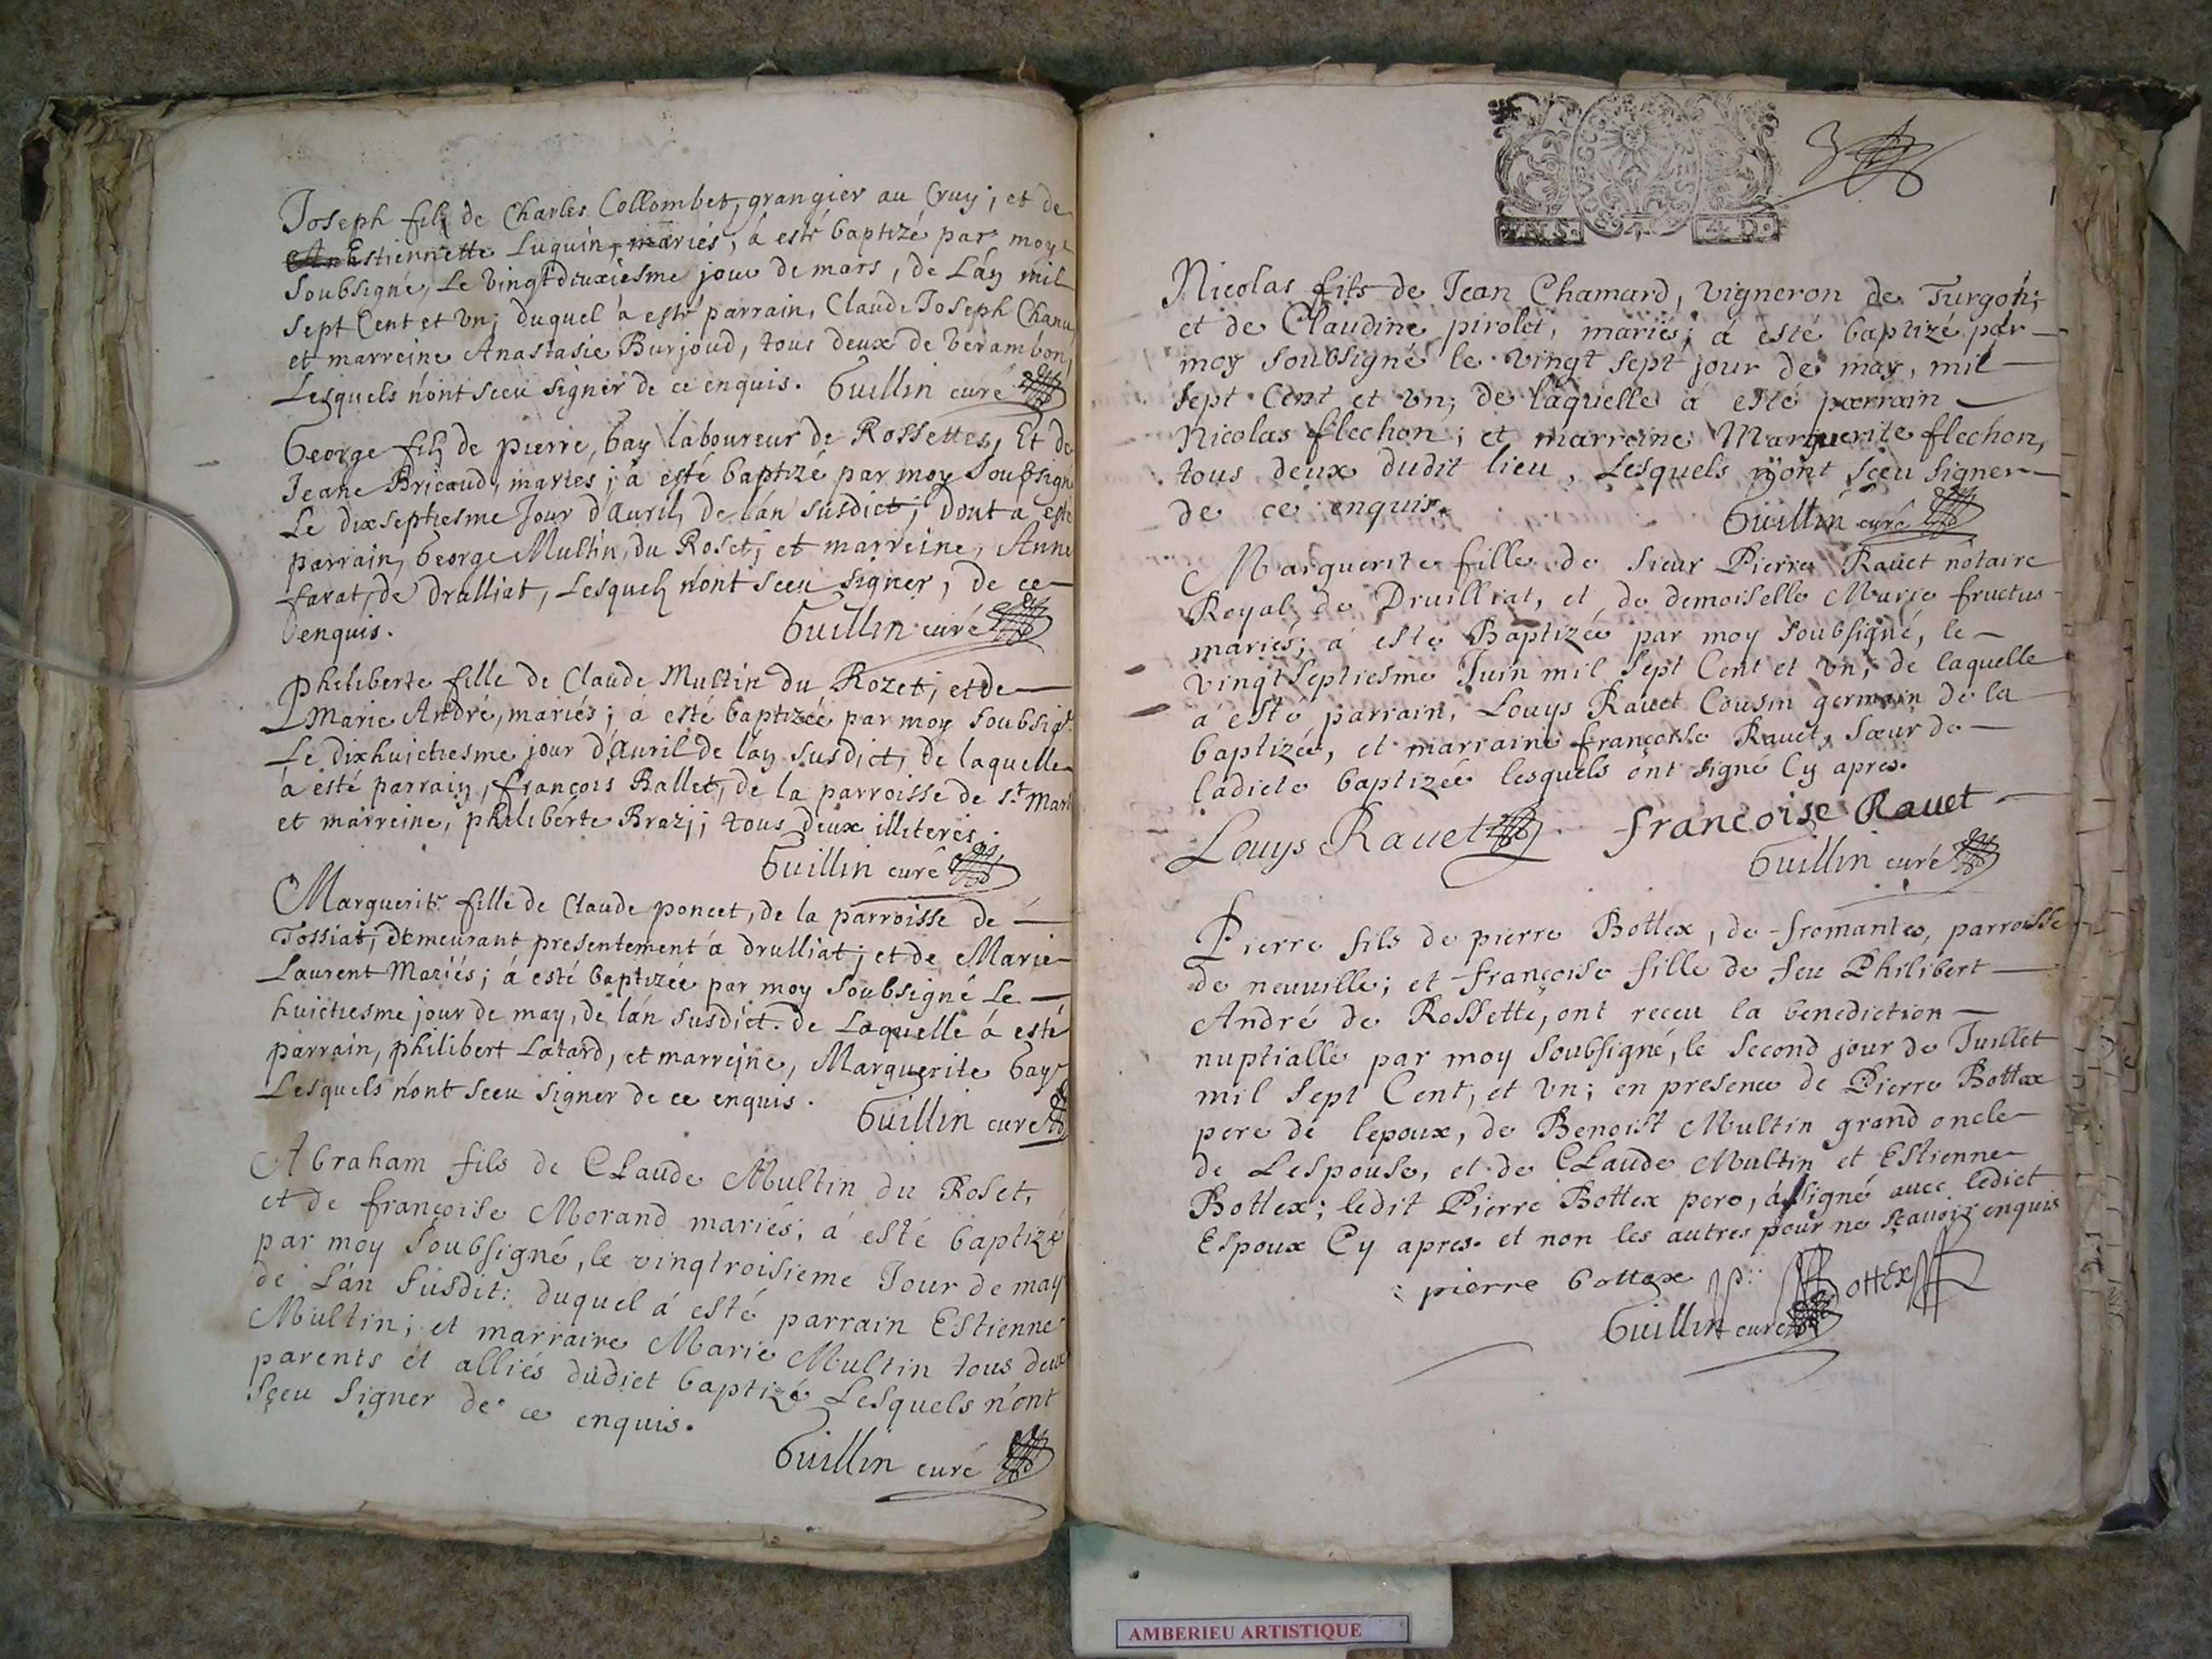 Joseph filz de Charles Collombet, grangier au Cruy; et de
Estiennette Luquin, mariés, á esté baptizé par moy
Soubsigné, Le vingtdeuxiesme jour de mars, de Lán mil
Sept Cent et vn; duquel á esté parrain, Claude Joseph Chanu
et marreine Anastasie Burjoud, tous deux de verambon,
Lesquels nónt sceu signer de ce enquis. Guillin curé
George filz de pierre, Gay laboureur de Rossettes, Et de
Jeane Bricaud, mariés; á esté baptizé par moy Soubsigné
Le dixseptiesme Jour dAuril, de lán susdict; dont a esté
parrain, George Multin, du Roset; et marreine, Anne
farat, de drulliat, Lesquelz nónt sceu signer, de ce
enquis. Guillin curé
Philiberte fille de Claude Multin du Rozet; et de
Marie André, mariés; á esté baptizée par moy soubsigé
Le dixhuictiesme jour dAuril de lán susdict, de laquelle
á esté parrain, françois Rallet, de la parroisse de st. Mar
et marreine, philiberte Brazj; tous deux illiterés.
Guillin curé
Marguerite fille de Claude poncet, de la parroisse de
Tossiat, demeurant presentement á drulliat; et de Marie
Laurent Mariés; á esté baptizée par moy Soubsigné Le
huictiesme jour de may, de lán susdict. de Laquelle á esté
parrain, philibert Latard, et marreine, Marguerite Gay
Lesquels nónt sceu signer de ce enquis.
Guillin curé
Abraham fils de CLaude Multin du Roset,
et de françoise Morand mariés; á esté baptizé
par moy soubsigné, le vingtroisieme Jour de may
de Lán susdit: duquel á esté parrain Estienne
Multin; et marraine Marie Multin tous deux
parents et alliés dudict baptizé Lesquels nónt
sçeu signer de ce enquis.
Guillin curé
Nicolas fils de Jean Chamard, vigneron de Turgon;
et de Claudine pirolet, mariés; á esté baptizé par
moy soubsigné le vingt sept jour de may, mil
sept Cent et vn; de laquelle á esté parrain
Nicolas flechon; et marreine Marguerite flechon,
tous deux dudit lieu, Lesquels nónt sceu signer
de ce enquis.
Guillin curé
Marguerite fille de sieur Pierre Rauet nótaire
Royal de Druilliat, et de demoiselle Marie fructus
mariés; á esté Baptizée par moy soubsigné, le
vingtseptiesme Juin mil sept Cent et vn; de laquelle
á esté parrain, Louys Rauet Cousin germain de la
baptizée, et marraine françoise Rauet, sœur de
ladicte baptizée lesquels ont signé Cy apres.
Louys Rauet francoise Rauet
Guillin curé
Pierre fils de pierre Bottex, de fromantes, parroisse
de neuuille; et françoise fille de feu Philibert
André de Rossette, ont receu la benediction
nuptialle par moy soubsigné, le second jour de Juillet
mil sept Cent, et vn; en presence de Pierre Bottex
pere de lepoux, de Benoist Multin grand oncle
de Lespouse, et de CLaude Multin et Estienne
Bottex; ledit Pierre Bottex pere, á signé auec ledict
Espoux Cy apres. et non les autres pour ne sçauoir enquis
pierre bottex p: Bottex
Guillin curé
AMBERIEU ARTISTIQUE